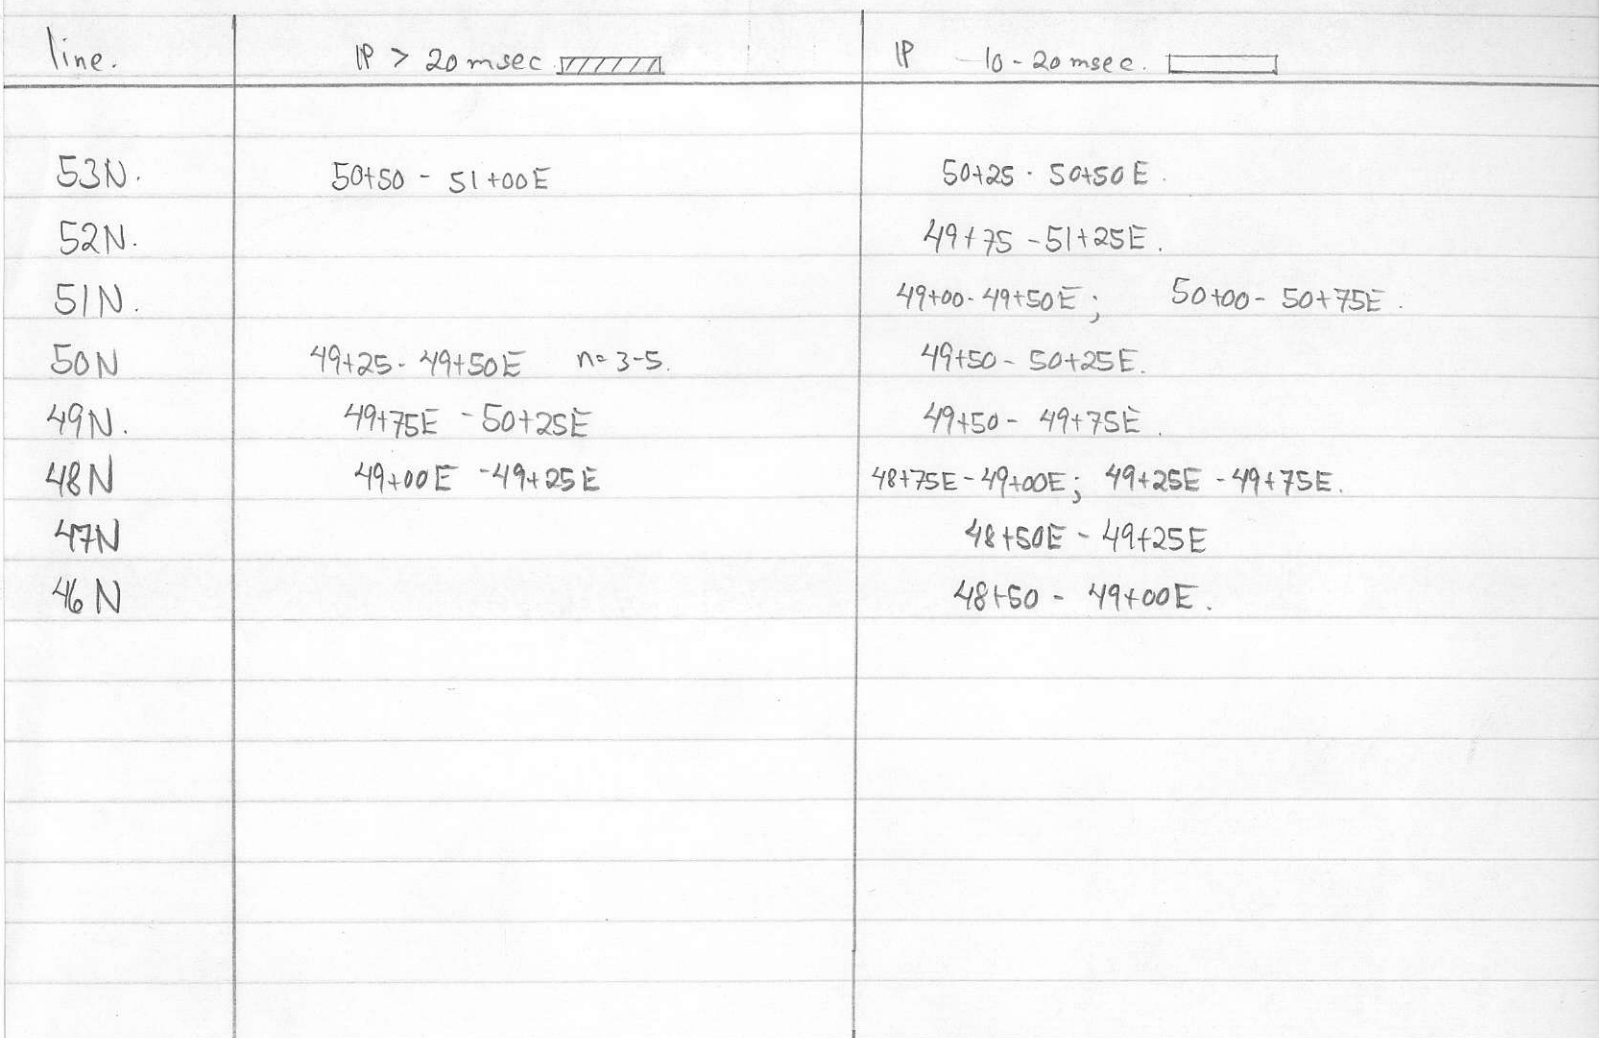 line. IP > 20 msec IP - 10 - 20 msec.
53N. 50+50 - 51+00E 50+25 - 50+50E.
52N. 49+75 - 51+25E.
51N. 49+00 - 49+50E; 50+00 - 50+75E.
50N 49+25 - 49+50E n= 3-5. 49+50 - 50+25E.
49N. 49+75E - 50+25E 49+50 - 49+75E.
48N 49+00E - 49+25E 48+75E - 49+00E; 49+25E - 49+75E.
47N 48+50E - 49+25E
46N 48+50 - 49+00E.